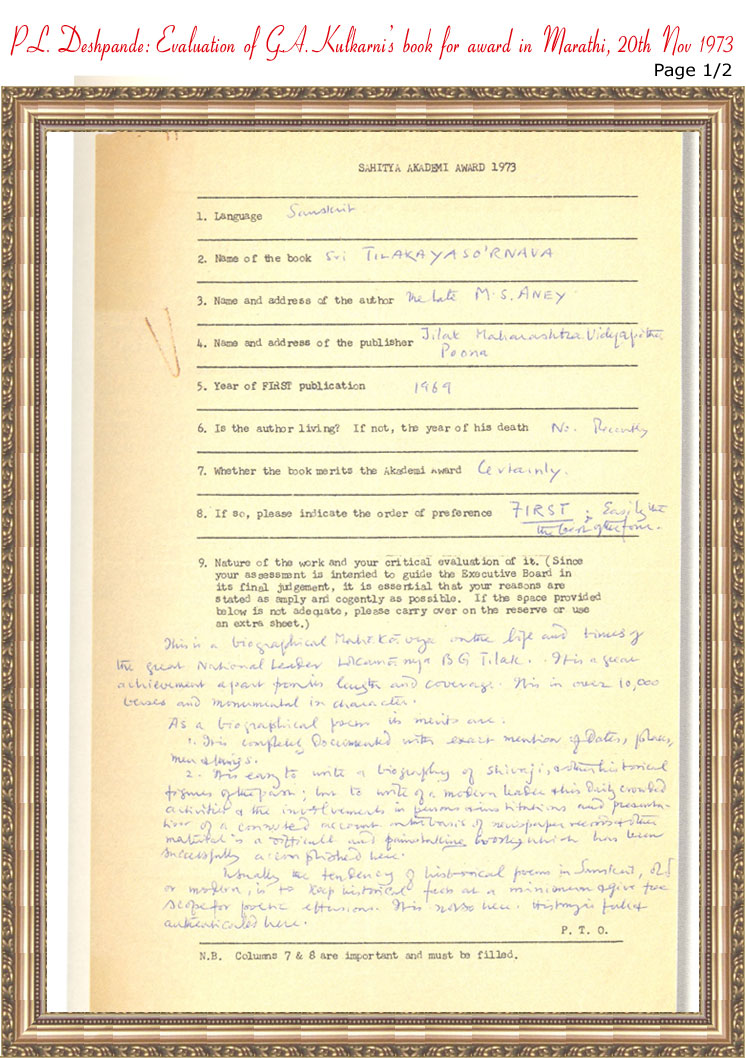 P.L. Deshpande: Evaluation of G.A. Kulkarni's book for award in Marathi, 20th Nov 1973
Page 1/2
SAHITYA AKADEMI AWARD 1973
1. Language Sanskrit
2. Name of the book Sri TILAKAYASO'RNAVA
3. Name and address of the author The late M.S. ANEY
4. Name and address of the publisher Tilak Maharashtra Vidyapitha
Poona
5. Year of FIRST publication 1969
6. Is the author living? If not, the year of his death No. Recently
7. Whether the book merits the Akademi Award Certainly.
8. If so, please indicate the order of preference FIRST; Easily the
the best of the four.
9. Nature of the work and your critical evaluation of it. (Since
your assessment is intended to guide the Executive Board in
its final judgement, it is essential that your reasons are
stated as amply and cogently as possible. If the space provided
below is not adequate, please carry over on the reserve or use
an extra sheet.)
This is a biographical Mahākāvya on the life and times of
the great National Leader Lokamānya B G Tilak. It is a great
achievement apart from its length and coverage. It is in over 10,000
verses and monumental in character.
As a biographical poem its merits are:
1. It is completely Documented with exact mention of Dates, places,
men & things.
2. It is easy to write a biography of Shivaji, & other historical
figures of the past; but to write of a modern leader & his Daily crowded
activities & the involvements in persons & institutions and presenta-
tion of a connected account on the basis of newspaper records & other
material is a difficult and painstaking which has been
successfully accomplished here.
Usually the tendency of historical poems in Sanskrit, old
or modern, is to keep historical facts at a minimum & give free
scope for poetic effusions. It is not so here. History is fully
authenticated here.
P. T. O.
N.B. Columns 7 & 8 are important and must be filled.